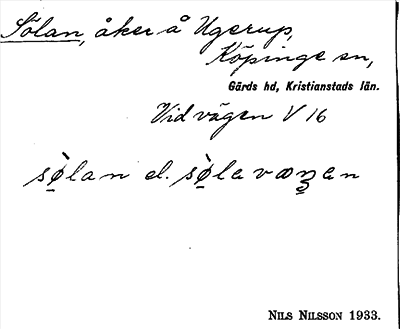 Sölan, åker å Ugerup,
Köpinge sn,
Gärds hd, Kristianstads län.
Vid vägen V 16
sø̀lan el. sø̀lavæŋen
NILS NILSSON 1933.